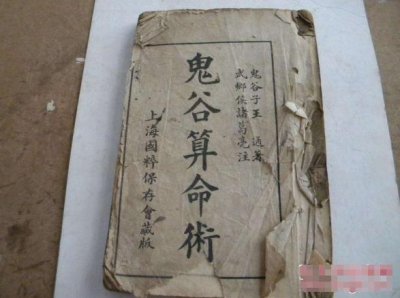 鬼谷子王遁著
武鄉侯諸葛亮注
鬼谷算命術
上海國粹保存會藏版